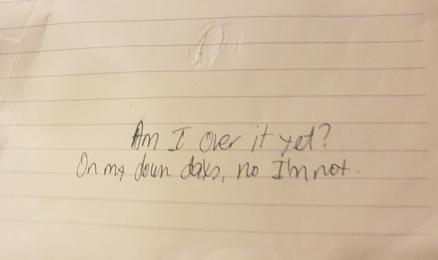 Am I over it yet?
On my down daks, no I'm not.